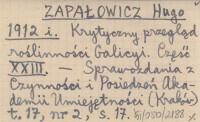 ZAPAŁOWICZ Hugo
1912 i. Krytyczny przegląd
roślinności Galicyi. Część
XXIII. — Sprawozdania z
Czynności i Posiedzeń Aka-
demii Umiejętności (Kraków)
t. 17, nr 2, s. 17.